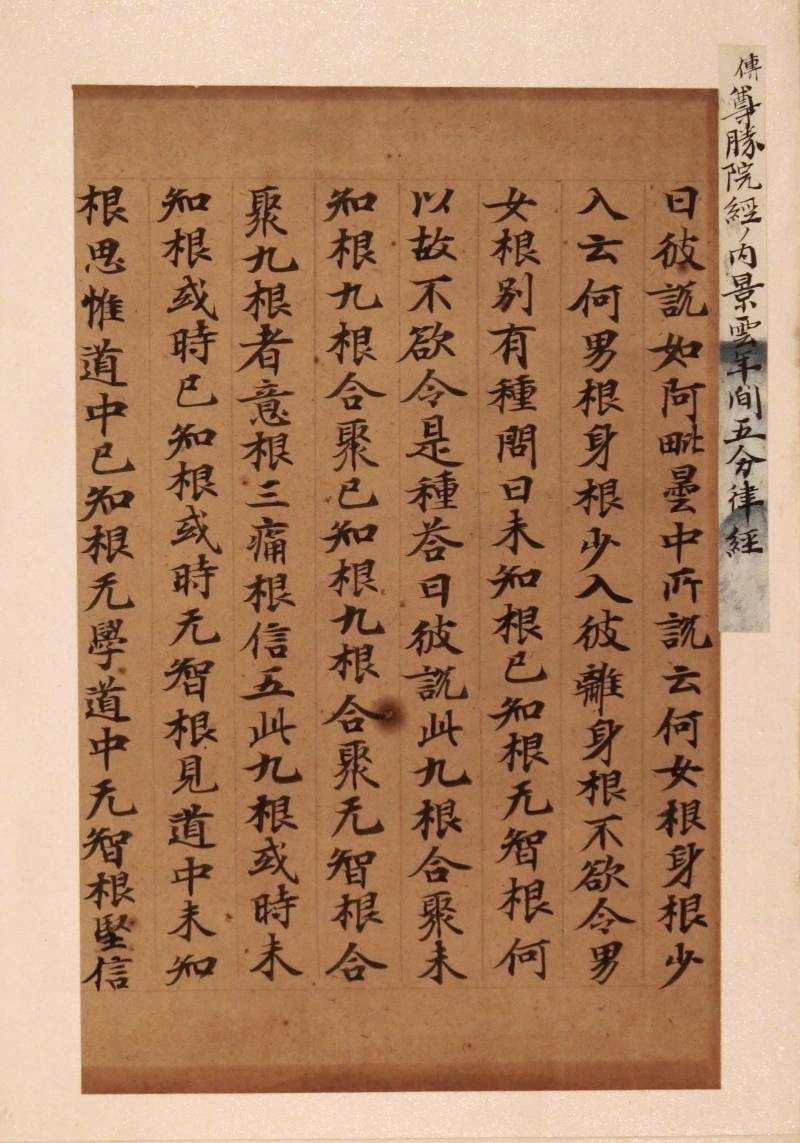 傳尊勝院經ノ内景雲年間五分律經
曰彼說如阿毗曇中所說云何女根身根少
入云何男根身根少入彼離身根不欲令男
女根別有種問曰未知根已知根无智根何
以故不欲令是種荅曰彼說此九根合聚未
知根九根合聚已知根九根合聚无智根合
聚九根者意根三痛根信五此九根或時未
知根或時已知根或時无智根見道中未知
根思惟道中已知根无學道中无智根堅信